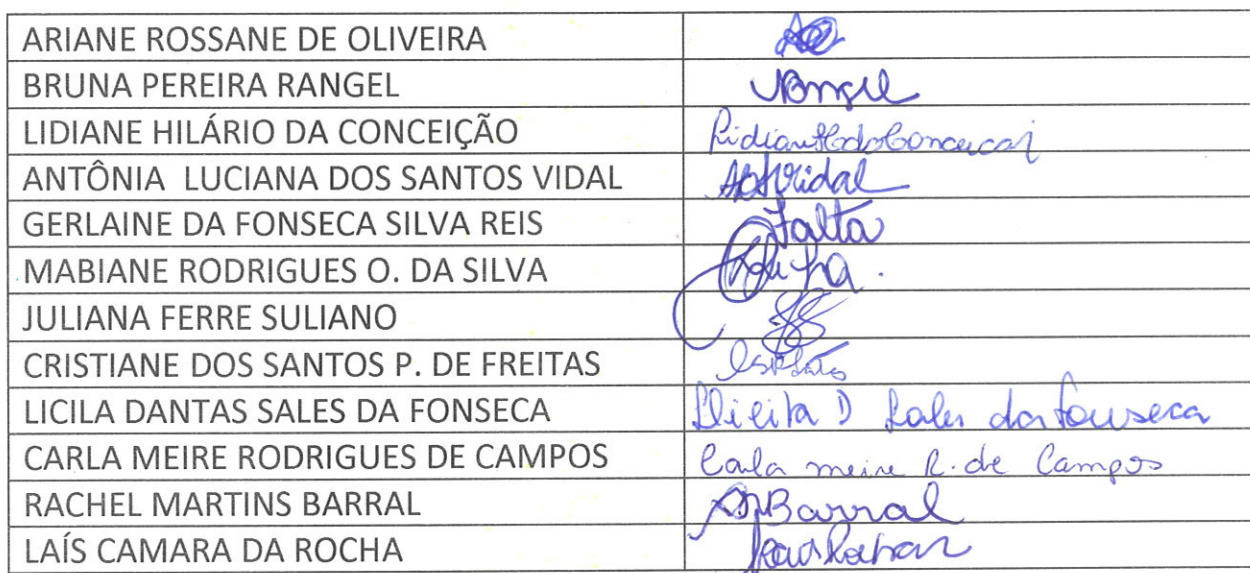 ARIANE ROSSANE DE OLIVEIRA
BRUNA PEREIRA RANGEL
LIDIANE HILÁRIO DA CONCEIÇÃO
ANTÔNIA LUCIANA DOS SANTOS VIDAL
GERLAINE DA FONSECA SILVA REIS Falta
MABIANE RODRIGUES O. DA SILVA
JULIANA FERRE SULIANO
CRISTIANE DOS SANTOS P. DE FREITAS
LICILA DANTAS SALES DA FONSECA D Sales da Fonseca
CARLA MEIRE RODRIGUES DE CAMPOS Carla meire R. de Campos
RACHEL MARTINS BARRAL Barral
LAÍS CAMARA DA ROCHA